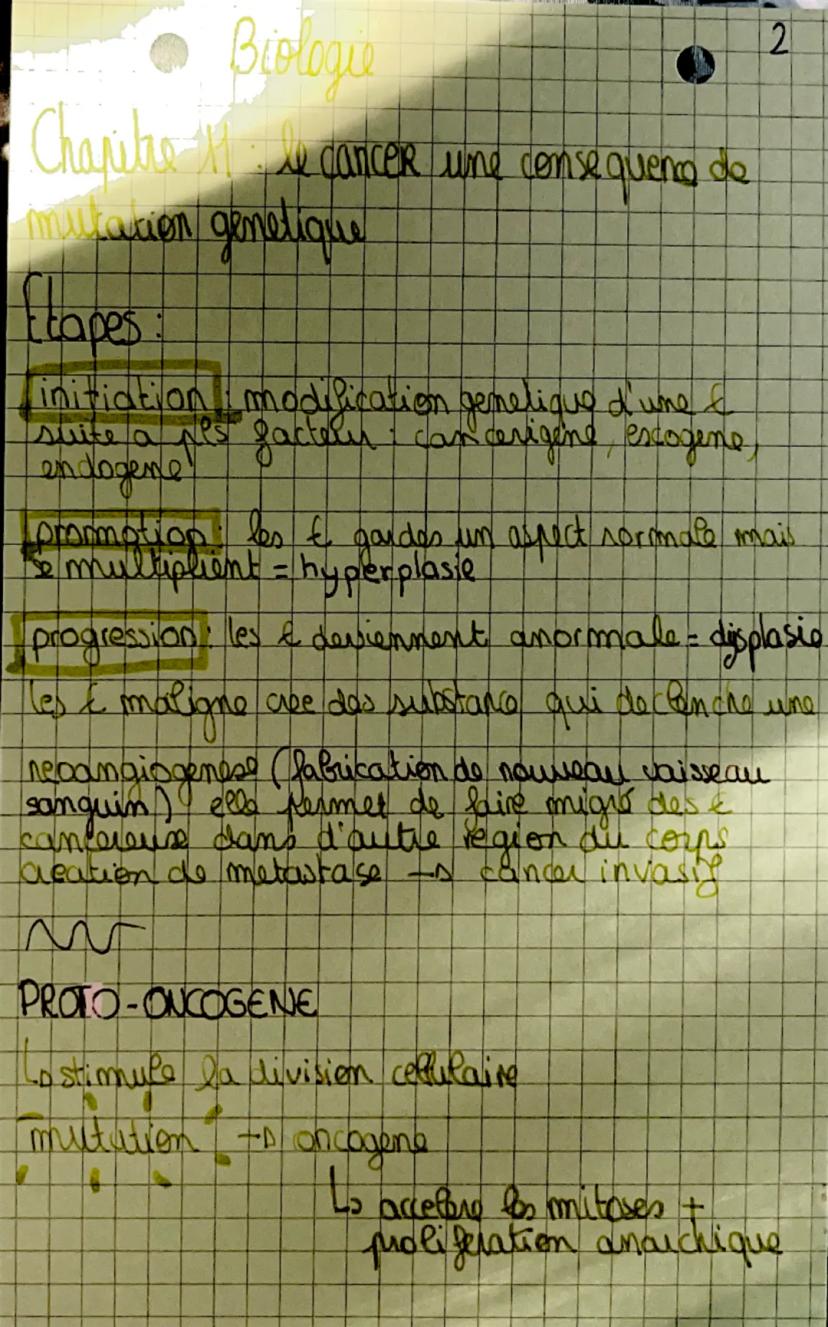 2
Biologie
Chapitre 11 : le cancer une consequenc de
mutation genetique
Etapes :
initiation : modification genetique d'une ₵
suite a pls facteur : cancerigene, exogene,
endogene
prommotion : les ₵ gardes un aspect normale mais
se multiplient = hyperplasie
progression : les ₵ deviennent anormale = displasie
les ₵ maligne cree des substance qui declenche une
neoangiogenese (fabrication de nouveau vaisseau
sanguin) elle permet de faire migré des ₵
cancereuse dans d'autre region du corps
creation de metastase → cancer invasif
PROTO-ONCOGENE
↳ stimule la division cellulaire
mutation → oncogene
↳ accelere les mitoses +
proliferation anarchique